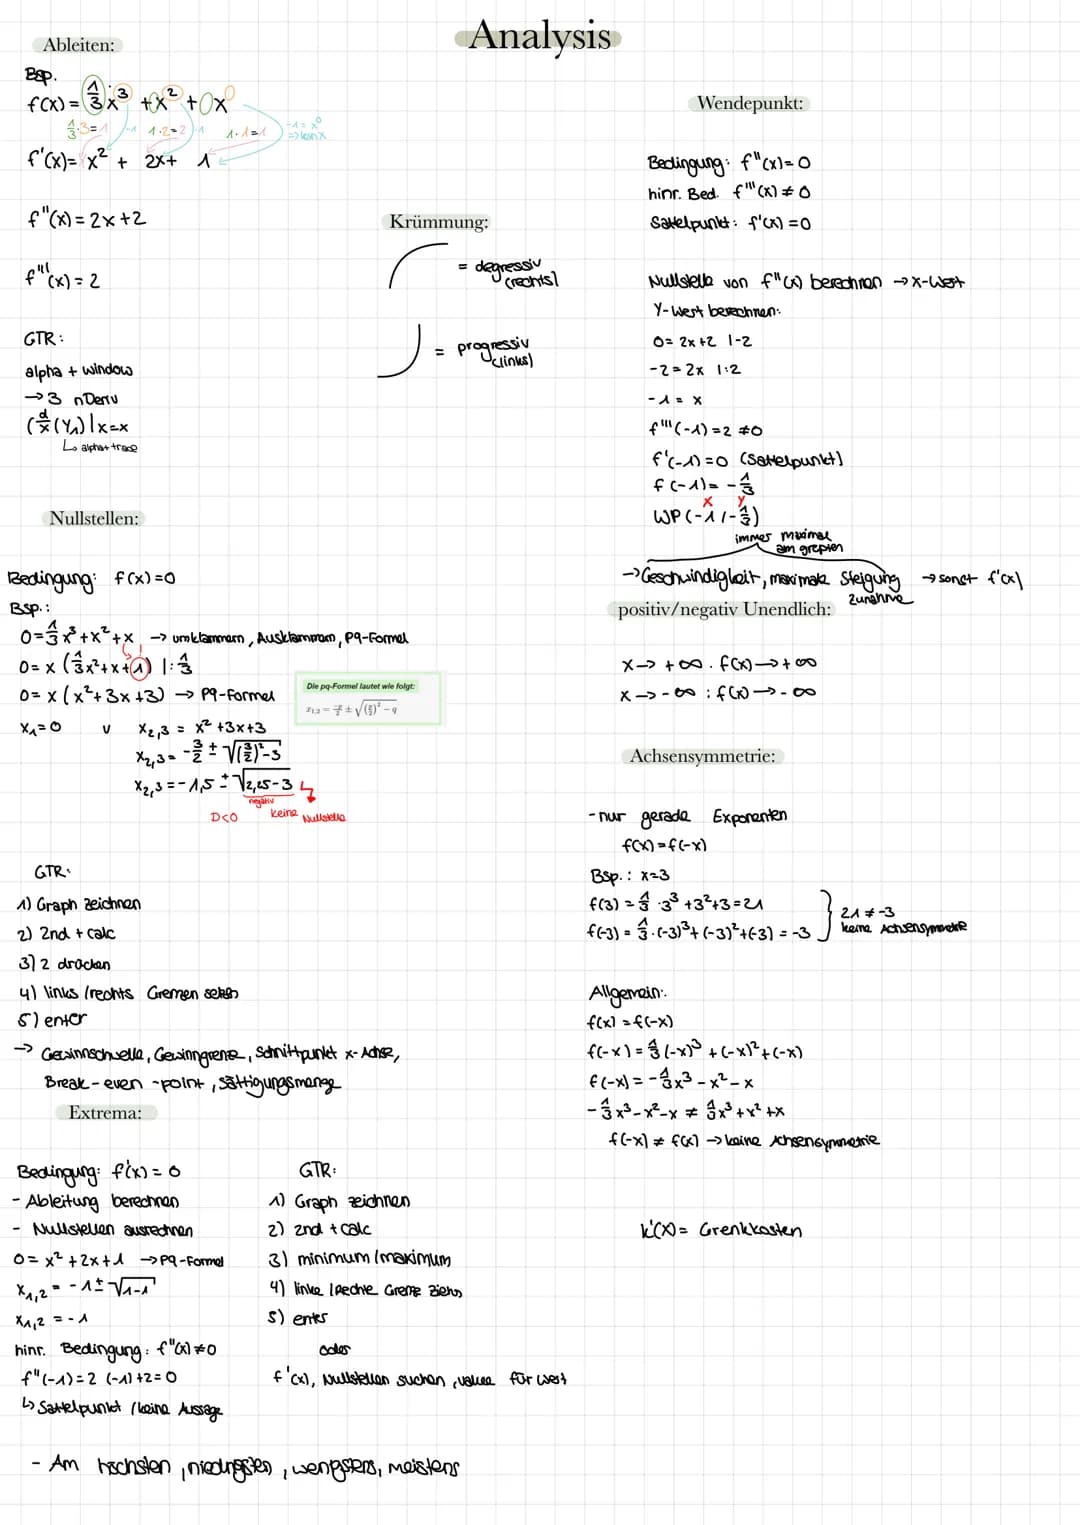 Analysis
Ableiten:
Bsp.
f(x) = 1/3 x³ + x² + 0x⁰
1/3·3=1 -1 1·2=2 -1 1·1=1 -1 = x⁰ => kein x
f'(x) = x² + 2x + 1
f''(x) = 2x + 2
f'''(x) = 2
GTR:
alpha + window
→ 3 nDeriv
(d/x (Y₁)|x=x
↳ alpha + trace
Krümmung:
= degressiv (rechts)
= progressiv (links)
Nullstellen:
Bedingung: f(x)=0
Bsp.:
0 = 1/3 x³ + x² + x → umklammern, Ausklammern, PQ-Formel
0 = x (1/3 x² + x + 1) |: 1/3
0 = x (x² + 3x + 3) → PQ-Formel
Die pq-Formel lautet wie folgt:
x₁,₂ = -p/2 ± √((p/2)² - q)
x₁ = 0 v x₂,₃ = x² + 3x + 3
x₂,₃ = -3/2 ± √((3/2)² - 3)
x₂,₃ = -1,5 ± √(2,25 - 3)
negativ
D<0 keine Nullstelle
GTR:
1) Graph zeichnen
2) 2nd + calc
3) 2 drücken
4) links /rechts Grenzen setzen
5) enter
→ Gewinnschwelle, Gewinngrenze, Schnittpunkt x-Achse,
Break-even-point, Sättigungsmenge
Extrema:
Bedingung: f'(x) = 0
- Ableitung berechnen
- Nullstellen ausrechnen
0 = x² + 2x + 1 → PQ-Formel
x₁,₂ = -1 ± √(1-1)
x₁,₂ = -1
hinr. Bedingung: f''(x) ≠ 0
f''(-1) = 2 (-1) + 2 = 0
↳ Sattelpunkt /keine Aussage
GTR:
1) Graph zeichnen
2) 2nd + calc
3) minimum/maximum
4) linke /rechte Grenze ziehen
5) enter
oder
f'(x), Nullstellen suchen, value für Wert
- Am höchsten, niedrigsten, wenigsten, meistens
Wendepunkt:
Bedingung: f''(x) = 0
hinr. Bed. f'''(x) ≠ 0
Sattelpunkt: f'(x) = 0
Nullstelle von f''(x) berechnen → x-Wert
Y-Wert berechnen:
0 = 2x + 2 |-2
-2 = 2x |:2
-1 = x
f'''(-1) = 2 ≠ 0
f'(-1) = 0 (Sattelpunkt)
f(-1) = -1/3
x y
WP (-1 / -1/3)
immer maximal
am größten
→ Geschwindigkeit, maximale Steigung → sonst f'(x)
Zunahme
positiv/negativ Unendlich:
x → +∞ : f(x) → +∞
x → -∞ : f(x) → -∞
Achsensymmetrie:
- nur gerade Exponenten
f(x) = f(-x)
Bsp.: x=3
f(3) = 1/3 · 3³ + 3² + 3 = 21
f(-3) = 1/3 · (-3)³ + (-3)² + (-3) = -3
21 ≠ -3
keine Achsensymmetrie
Allgemein:
f(x) = f(-x)
f(-x) = 1/3 (-x)³ + (-x)² + (-x)
f(-x) = -1/3 x³ - x² - x
-1/3 x³ - x² - x ≠ 1/3 x³ + x² + x
f(-x) ≠ f(x) → keine Achsensymmetrie
k'(x) = Grenzkosten